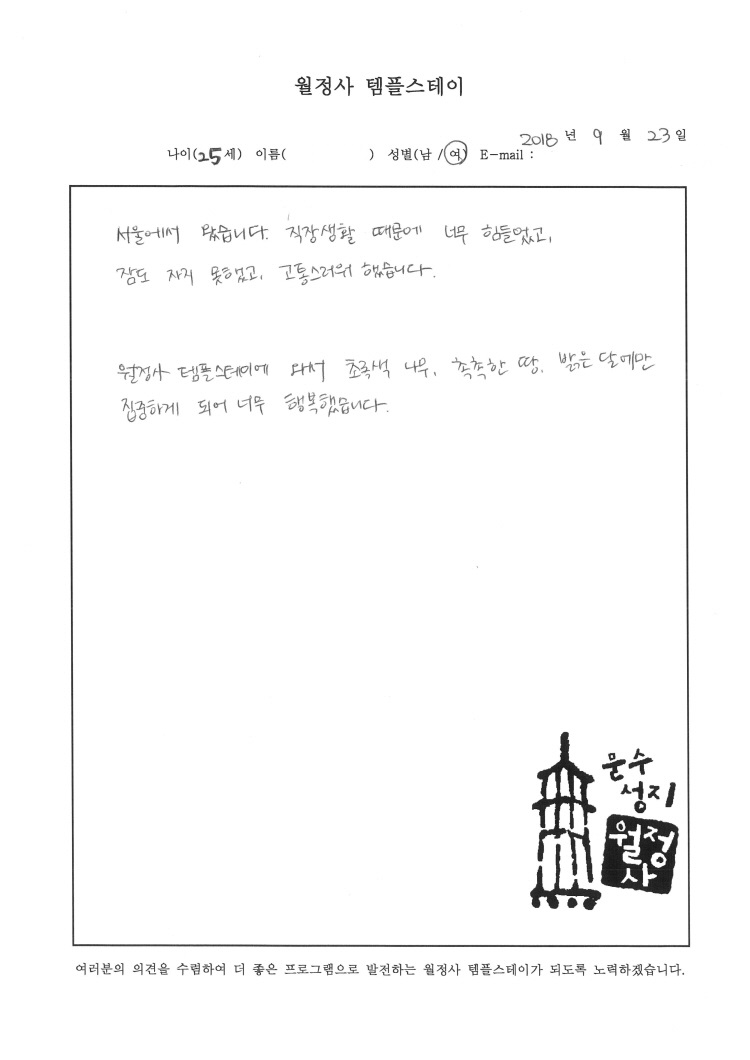 월정사 템플스테이
2018 년 9 월 23 일
나이(25세) 이름( ) 성별(남 / 여) E-mail :
서울에서 왔습니다. 직장생활 때문에 너무 힘들었고,
잠도 자지 못했고, 고통스러워 했습니다.
월정사 템플스테이에 와서 초록색 나무, 촉촉한 땅, 밝은 달에만
집중하게 되어 너무 행복했습니다.
문수
성지
월정
사
여러분의 의견을 수렴하여 더 좋은 프로그램으로 발전하는 월정사 템플스테이가 되도록 노력하겠습니다.